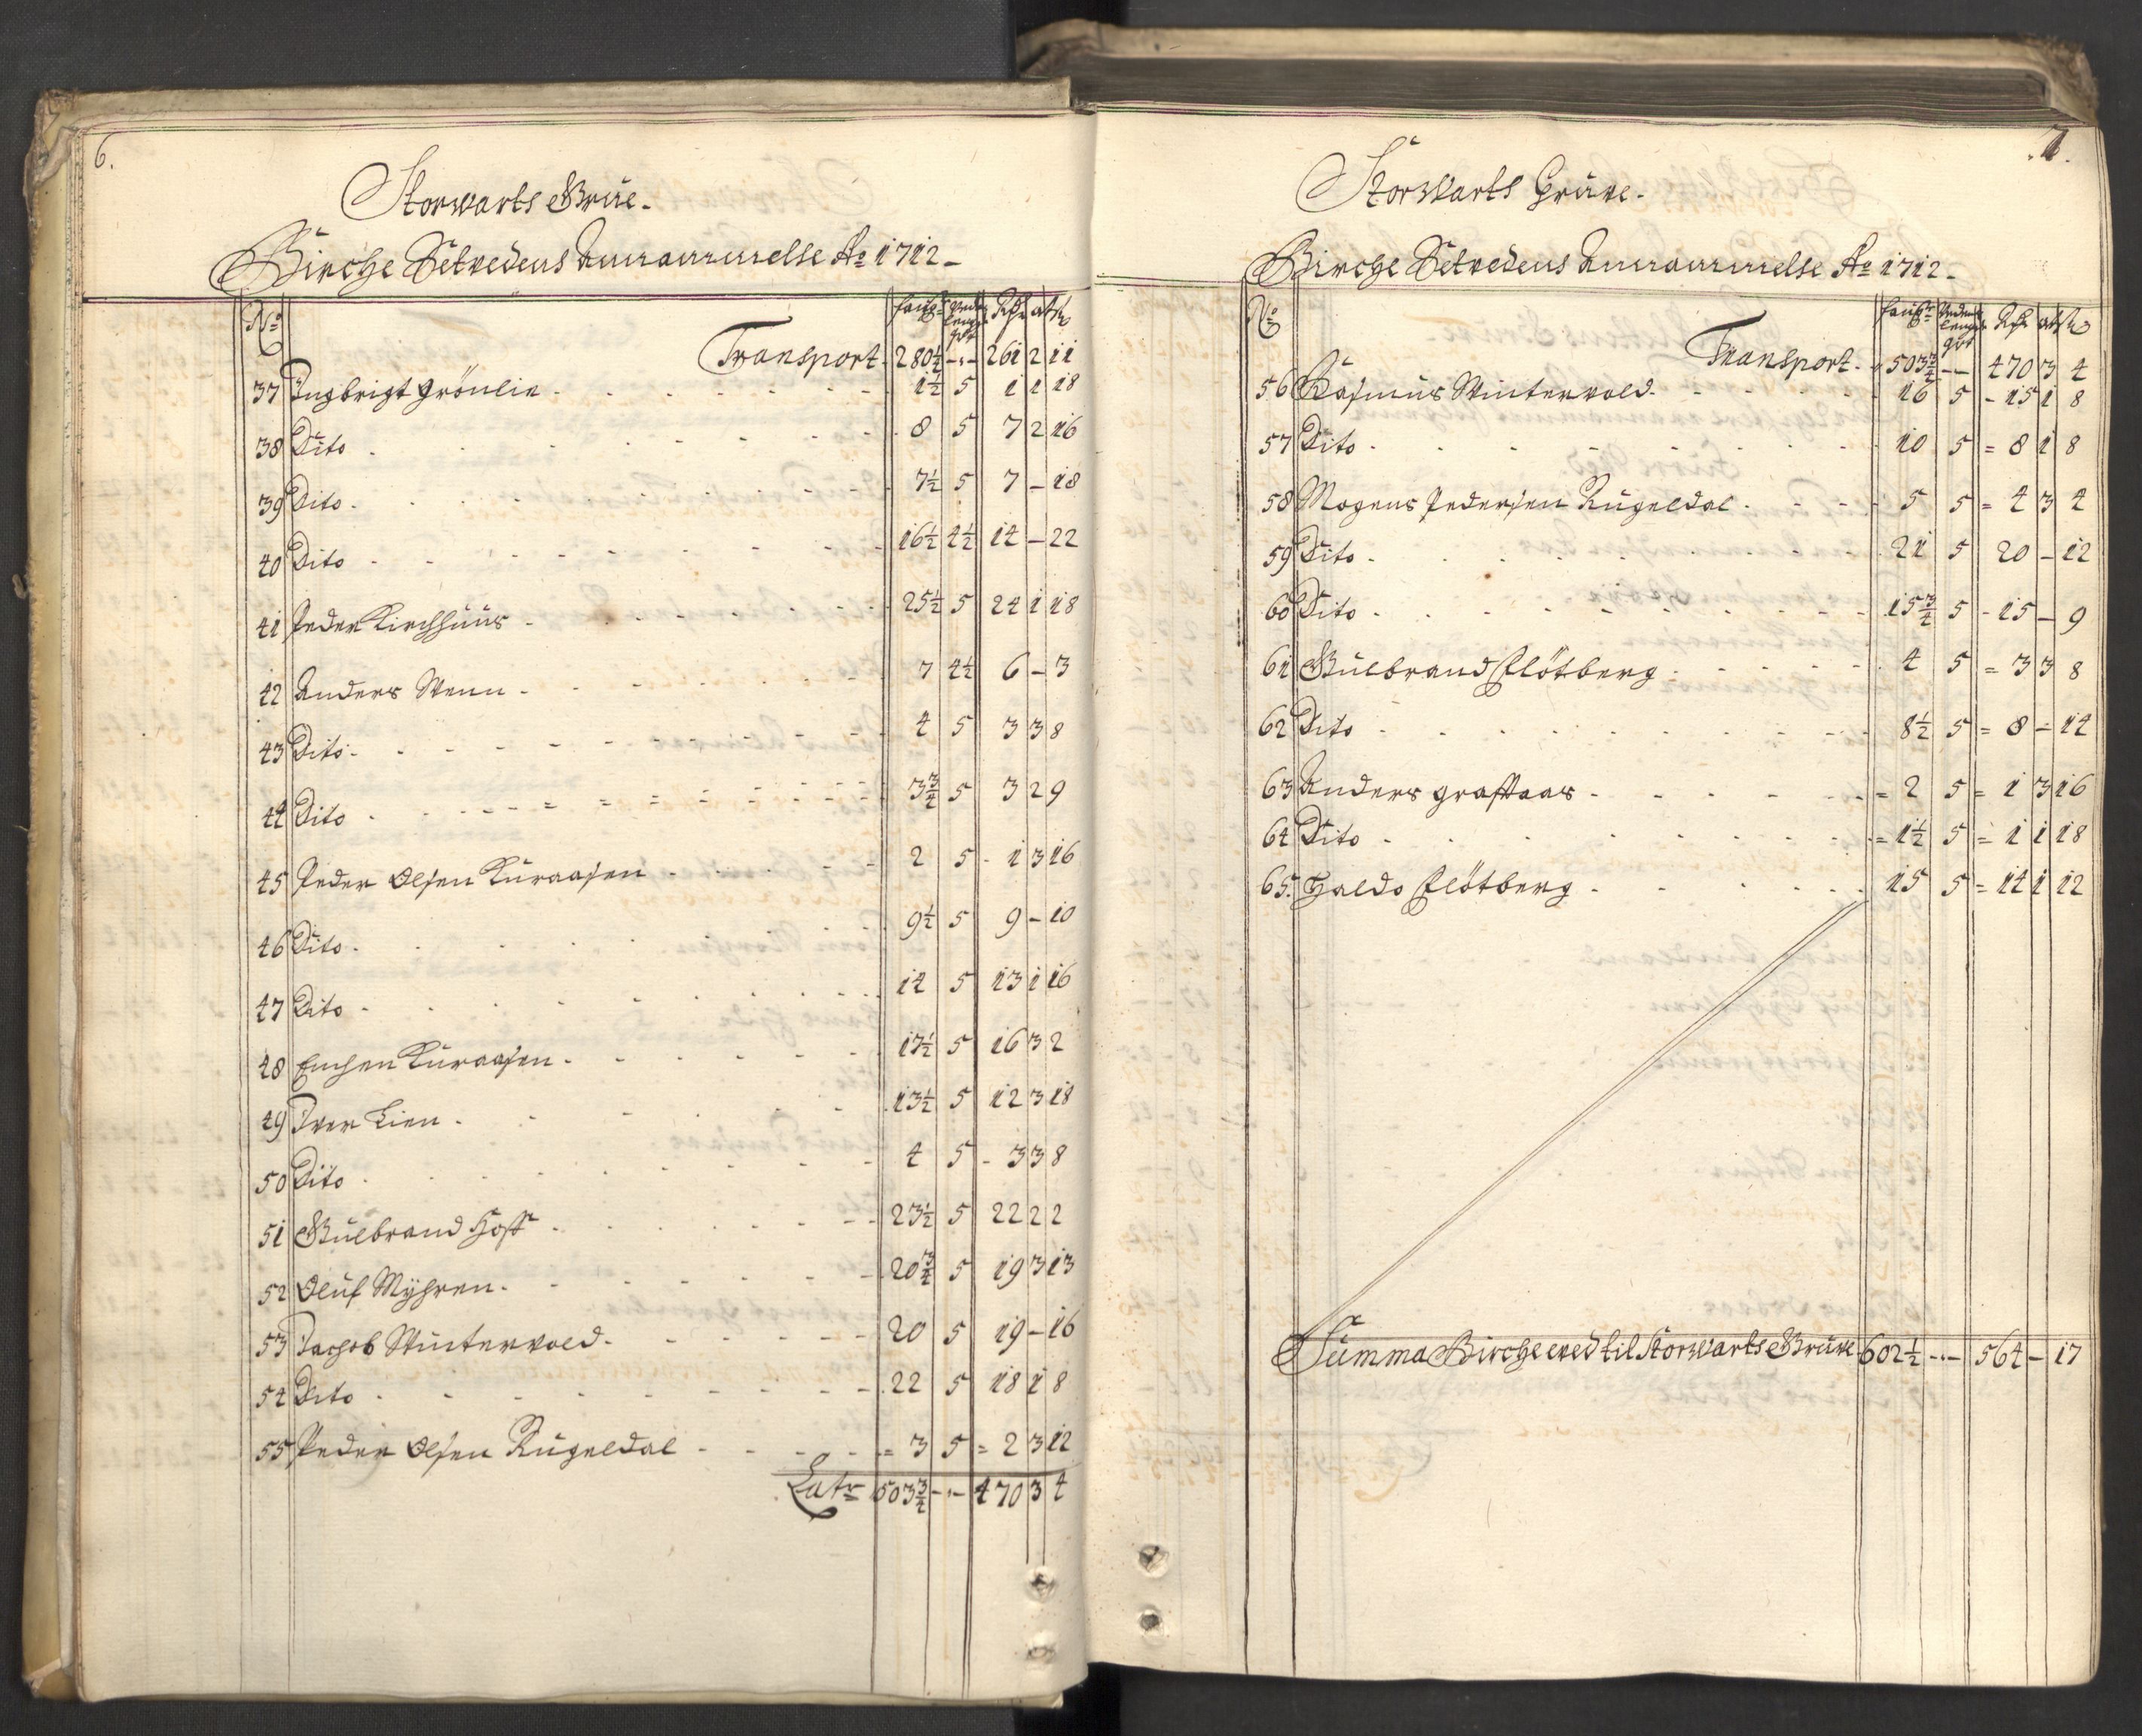 6.
Storwarts Grue.
Birche Setvedens Annammelse Ao 1712
No fauffn Vedens lengde qvr Rdr ort s
Transport 280½ - - 261 2 11
37 Ingbrigt Grönlie 1½ 5 1 1 18
38 Dito 8 5 7 2 16
39 Dito 7½ 5 7 - 18
40 Dito 16½ 4½ 14 - 22
41 Peder Kirchhuus 25½ 5 24 1 18
42 Anders Wenn 7 4½ 6 - 3
43 Dito 4 5 3 3 8
44 Dito 3¾ 5 3 2 9
45 Peder Olsen Kuraasen 2 5 1 3 16
46 Dito 9½ 5 9 - 10
47 Dito 14 5 13 1 16
48 Enchen Kuraasen 17½ 5 16 3 2
49 Iver Lien 13½ 5 12 3 18
50 Dito 4 5 3 3 8
51 Gulbrand Hoff 23½ 5 22 2 2
52 Oluf Myhren 20¾ 5 19 3 13
53 Jachob Wintervold 20 5 19 - 16
54 Dito 22 5 18 1 8
55 Peder Olsen Rugeldal 3 5 2 3 12
Latr 503¾ - - 470 3 4
7.
Storwarts Gruve.
Birche Setvedens Annammelse Ao 1712
No fauffn Vedens lengde qvr Rdr ort s
Transport 503¾ - - 470 3 4
56 Rasmus Wintervold 16 5 15 1 8
57 Dito 10 5 8 1 8
58 Mogens Pedersen Rugeldal 5 5 4 3 4
59 Dito 21 5 20 - 12
60 Dito 15¾ 5 15 - 9
61 Gulbrand Flötberg 4 5 3 3 8
62 Dito 8½ 5 8 - 14
63 Anders Graffaas 2 5 1 3 16
64 Dito 1½ 5 1 1 18
65. Haldo Flötberg 15 5 14 1 12
Summa Birche ved til Storwarts Gruve 602½ - - 564 - 17